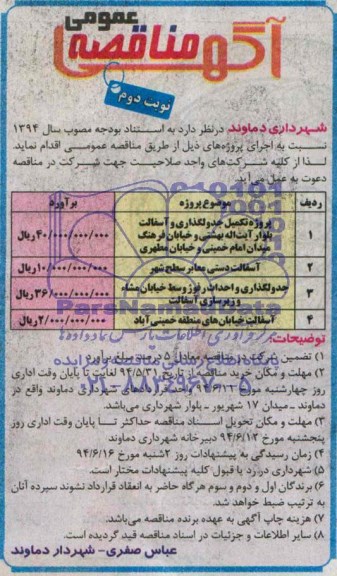 آگهی مناقصه عمومی
نوبت دوم
شهرداری دماوند درنظر دارد به استناد بودجه مصوب سال ۱۳۹۴
نسبت به اجرای پروژه‌های ذیل از طریق مناقصه عمومی اقدام نماید
لذا از کلیه شرکت‌های واجد صلاحیت جهت شرکت در مناقصه
دعوت به عمل می‌آید.
ردیف موضوع پروژه برآورد
۱ پروژه تکمیل جدولگذاری و آسفالت
بلوار آیت‌اله بهشتی و خیابان فرهنگ
میدان امام خمینی و خیابان مطهری ۴۰/۰۰۰/۰۰۰/۰۰۰ ریال
۲ آسفالت دستی معابر سطح شهر ۱۰/۰۰۰/۰۰۰/۰۰۰ ریال
۳ جدولگذاری و احداث رفوژ وسط خیابان مشاء
و زیرسازی آسفالت ۳۶/۰۰۰/۰۰۰/۰۰۰ ریال
۴ آسفالت خیابان‌های منطقه خمینی آباد ۲/۰۰۰/۰۰۰/۰۰۰ ریال
توضیحات:
۱) تضمین شرکت در مناقصه معادل ۵ درصد مبلغ برآورد
۲) مهلت و مکان خرید مناقصه از تاریخ ۹۴/۵/۳۱ لغایت تا پایان وقت اداری
روز چهارشنبه مورخ
دماوند ـ میدان ۱۷ شهریور ـ بلوار شهرداری می‌باشد.
۳) مهلت و مکان تحویل اسناد مناقصه حداکثر تا پایان وقت اداری روز
پنجشنبه مورخ ۹۴/۶/۱۲ دبیرخانه شهرداری دماوند
۴) زمان رسیدگی به پیشنهادات روز ۲شنبه مورخ ۹۴/۶/۱۶
۵) شهرداری در رد یا قبول کلیه پیشنهادات مختار است.
۶) برندگان اول و دوم و سوم هرگاه حاضر به انعقاد قرارداد نشوند سپرده آنان
به ترتیب ضبط خواهد شد.
۷) هزینه چاپ آگهی به عهده برنده مناقصه می‌باشد.
۸) سایر اطلاعات و جزئیات در اسناد مناقصه قید گردیده است.
عباس صفری- شهردار دماوند